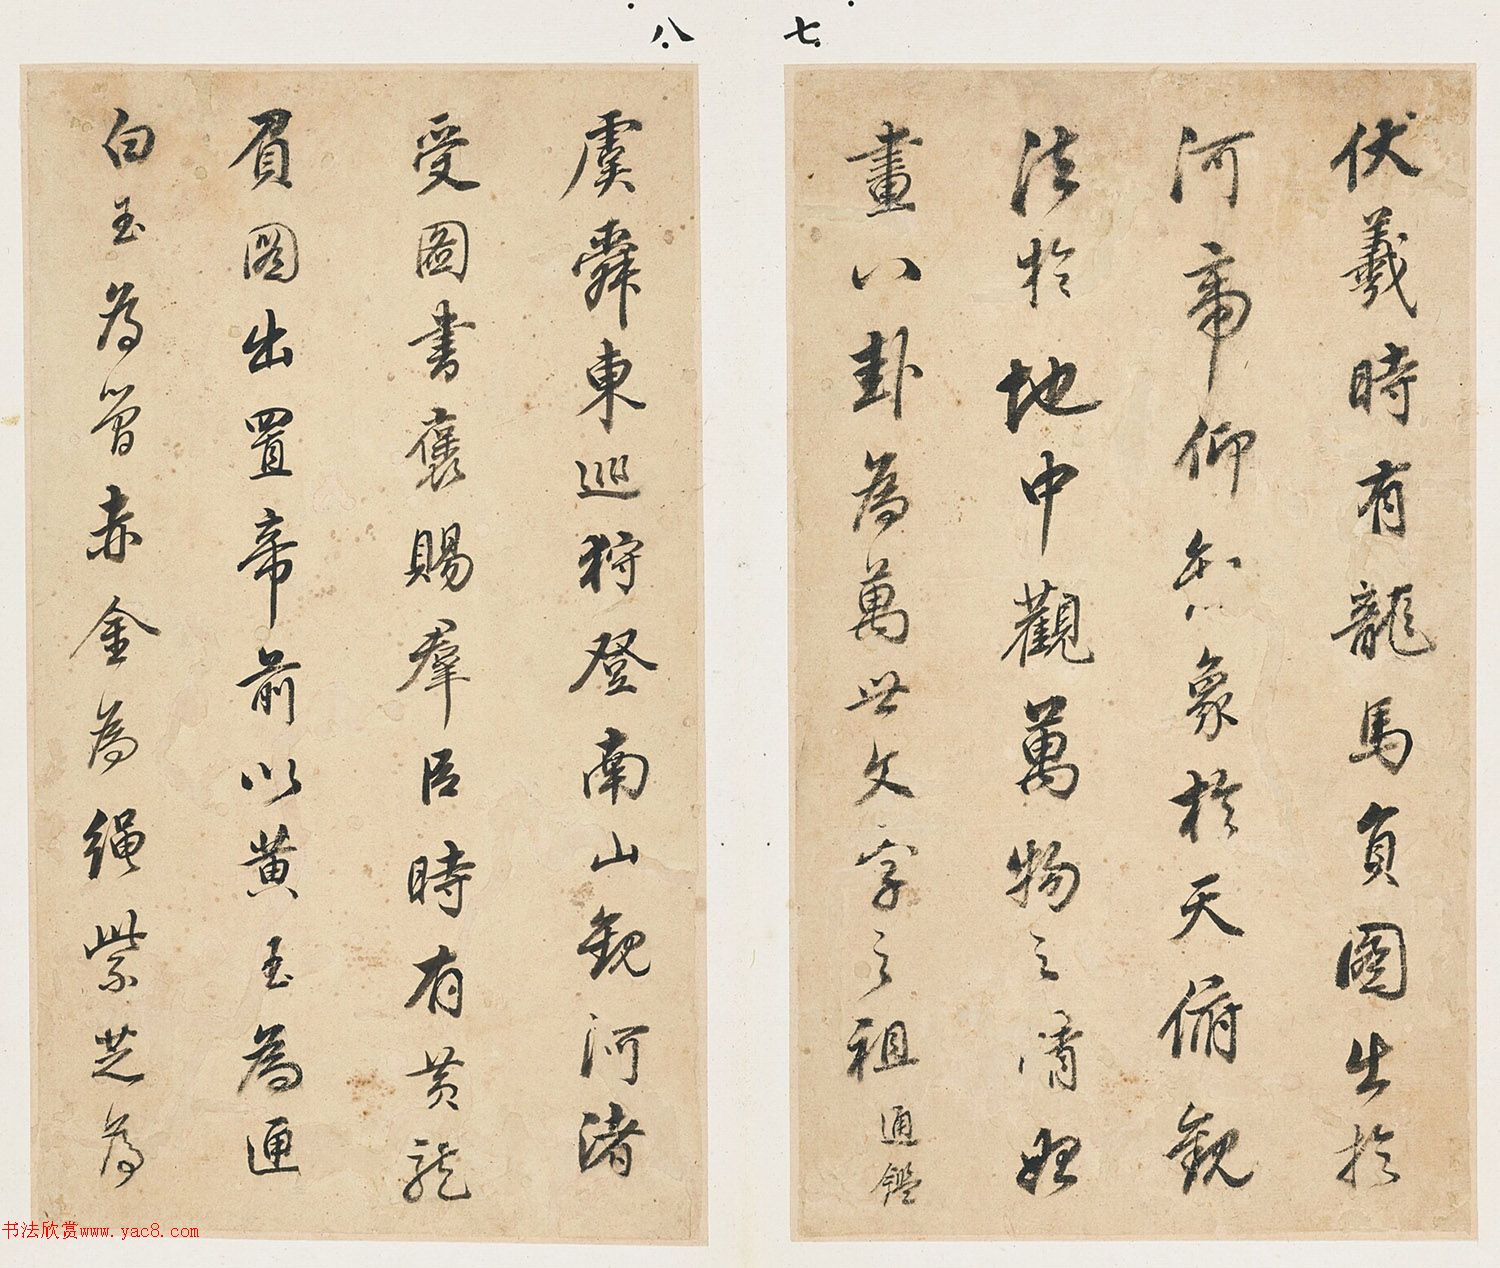 七
伏羲時有龍馬負圖出於
河帝仰象於天俯觀
法於地中觀萬物之情始
畫八卦為萬世文字之祖 通鑑
八
虞舜東巡狩登南山觀河渚
受圖書褒賜羣臣時有黃龍
負圖出置帝前以黃玉為匣
白玉為赤金為繩紫芝為
书法欣赏www.yac8.com